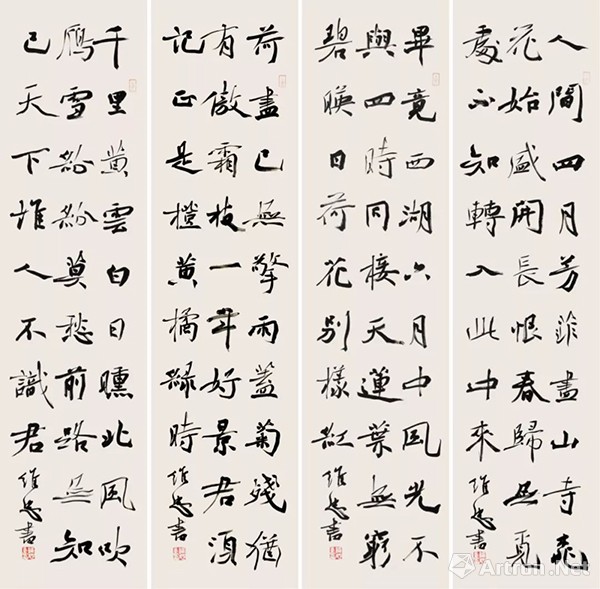 人間四月芳菲盡山寺桃
花始盛開長恨春歸無覓
處不知轉入此中來
維忠書
畢竟西湖六月中風光不
與四時同接天蓮葉無窮
碧暎日荷花別樣紅
維忠書
荷盡已無擎雨蓋菊殘猶
有傲霜枝一年好景君須
記正是橙黃橘綠時
維忠書
千里黃雲白日曛北風吹
鴈雪紛紛莫愁前路無知
己天下誰人不識君
維忠書
Artron.Net